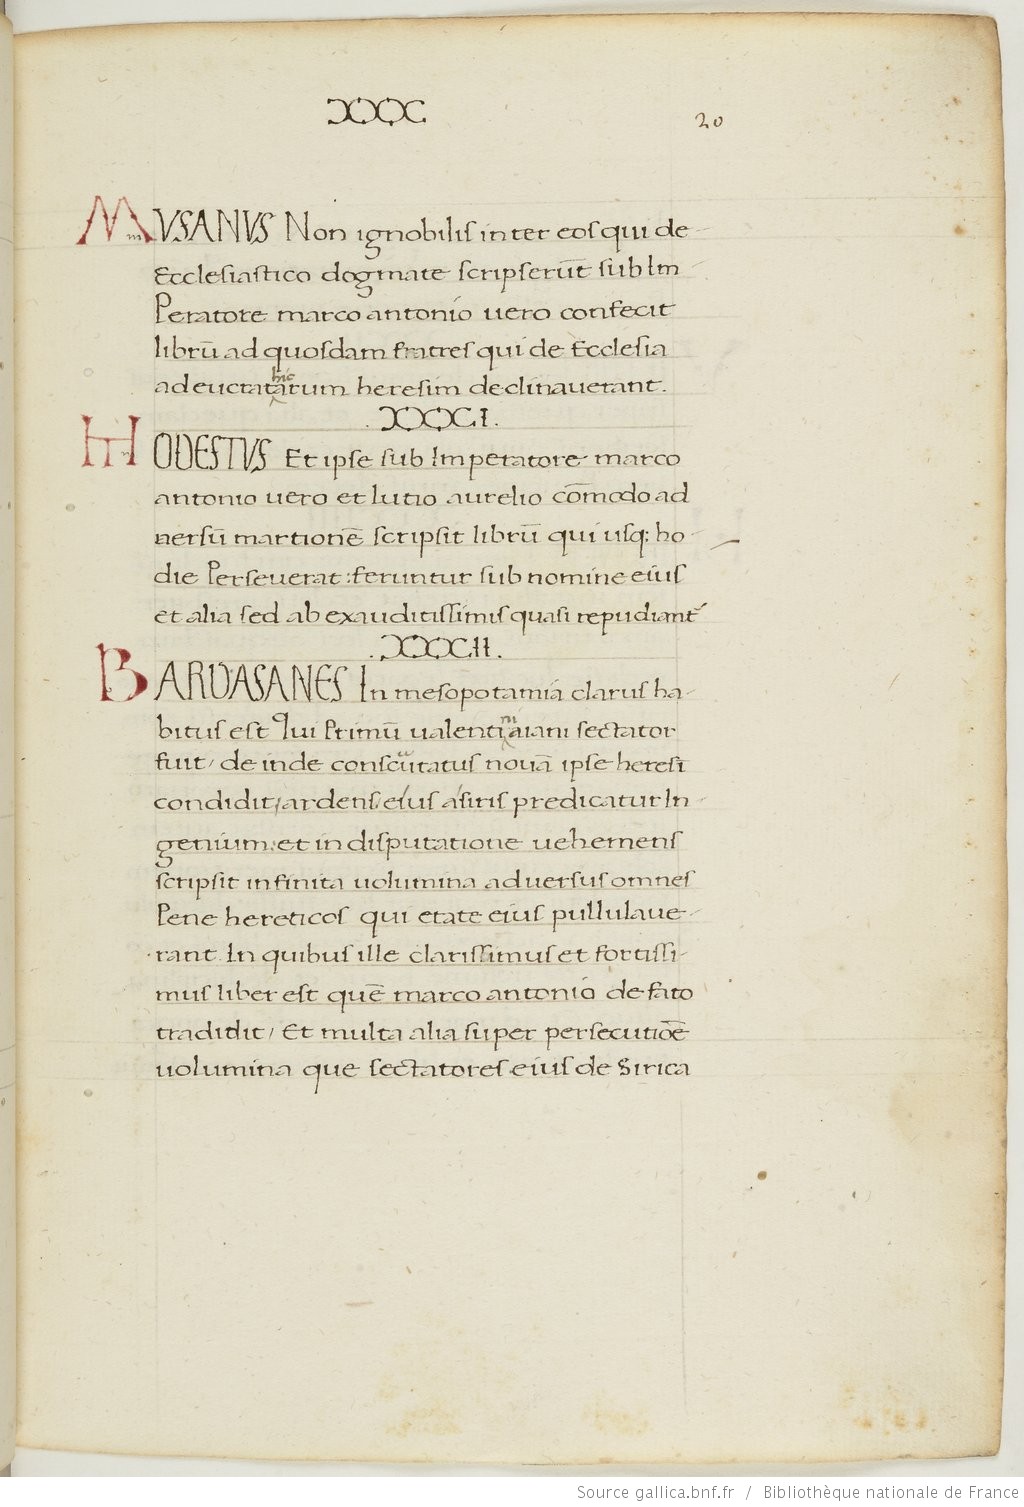 XXXC
20
MVSANVS Non ignobilis inter eos qui de
Ecclesiastico dogmate scripserūt sub Im
Peratore marco antonio uero confecit
librū ad quosdam fratres qui de Ecclesia
ad euctatarum heresim declinauerant.
.XXXCI.
MODESTVS Et ipse sub Imperatore marco
antonio uero et lutio aurelio cōmodo ad
uersū martionē scripsit librū qui usq: ho
die Perseuerat: feruntur sub nomine eius
et alia sed ab exauditissimis quasi repudiant
.XXXCII.
BARDASANES In mesopotamia clarus ha
bitus est Qui Primū ualentiaiani sectator
fuit/ de inde confutatus nouā ipse heresi
condidit/ ardens eius asiris predicatur In
genium: et in disputatione uehemens
scripsit infinita uolumina aduersus omnes
Pene hereticos qui etate eius pullulaue
rant In quibus ille clarissimus et fortissi
mus liber est quē marco antonio de fato
tradidit/ Et multa alia super persecutiōē
uolumina que sectatores eius de Sirica
Source gallica.bnf.fr / Bibliothèque nationale de France